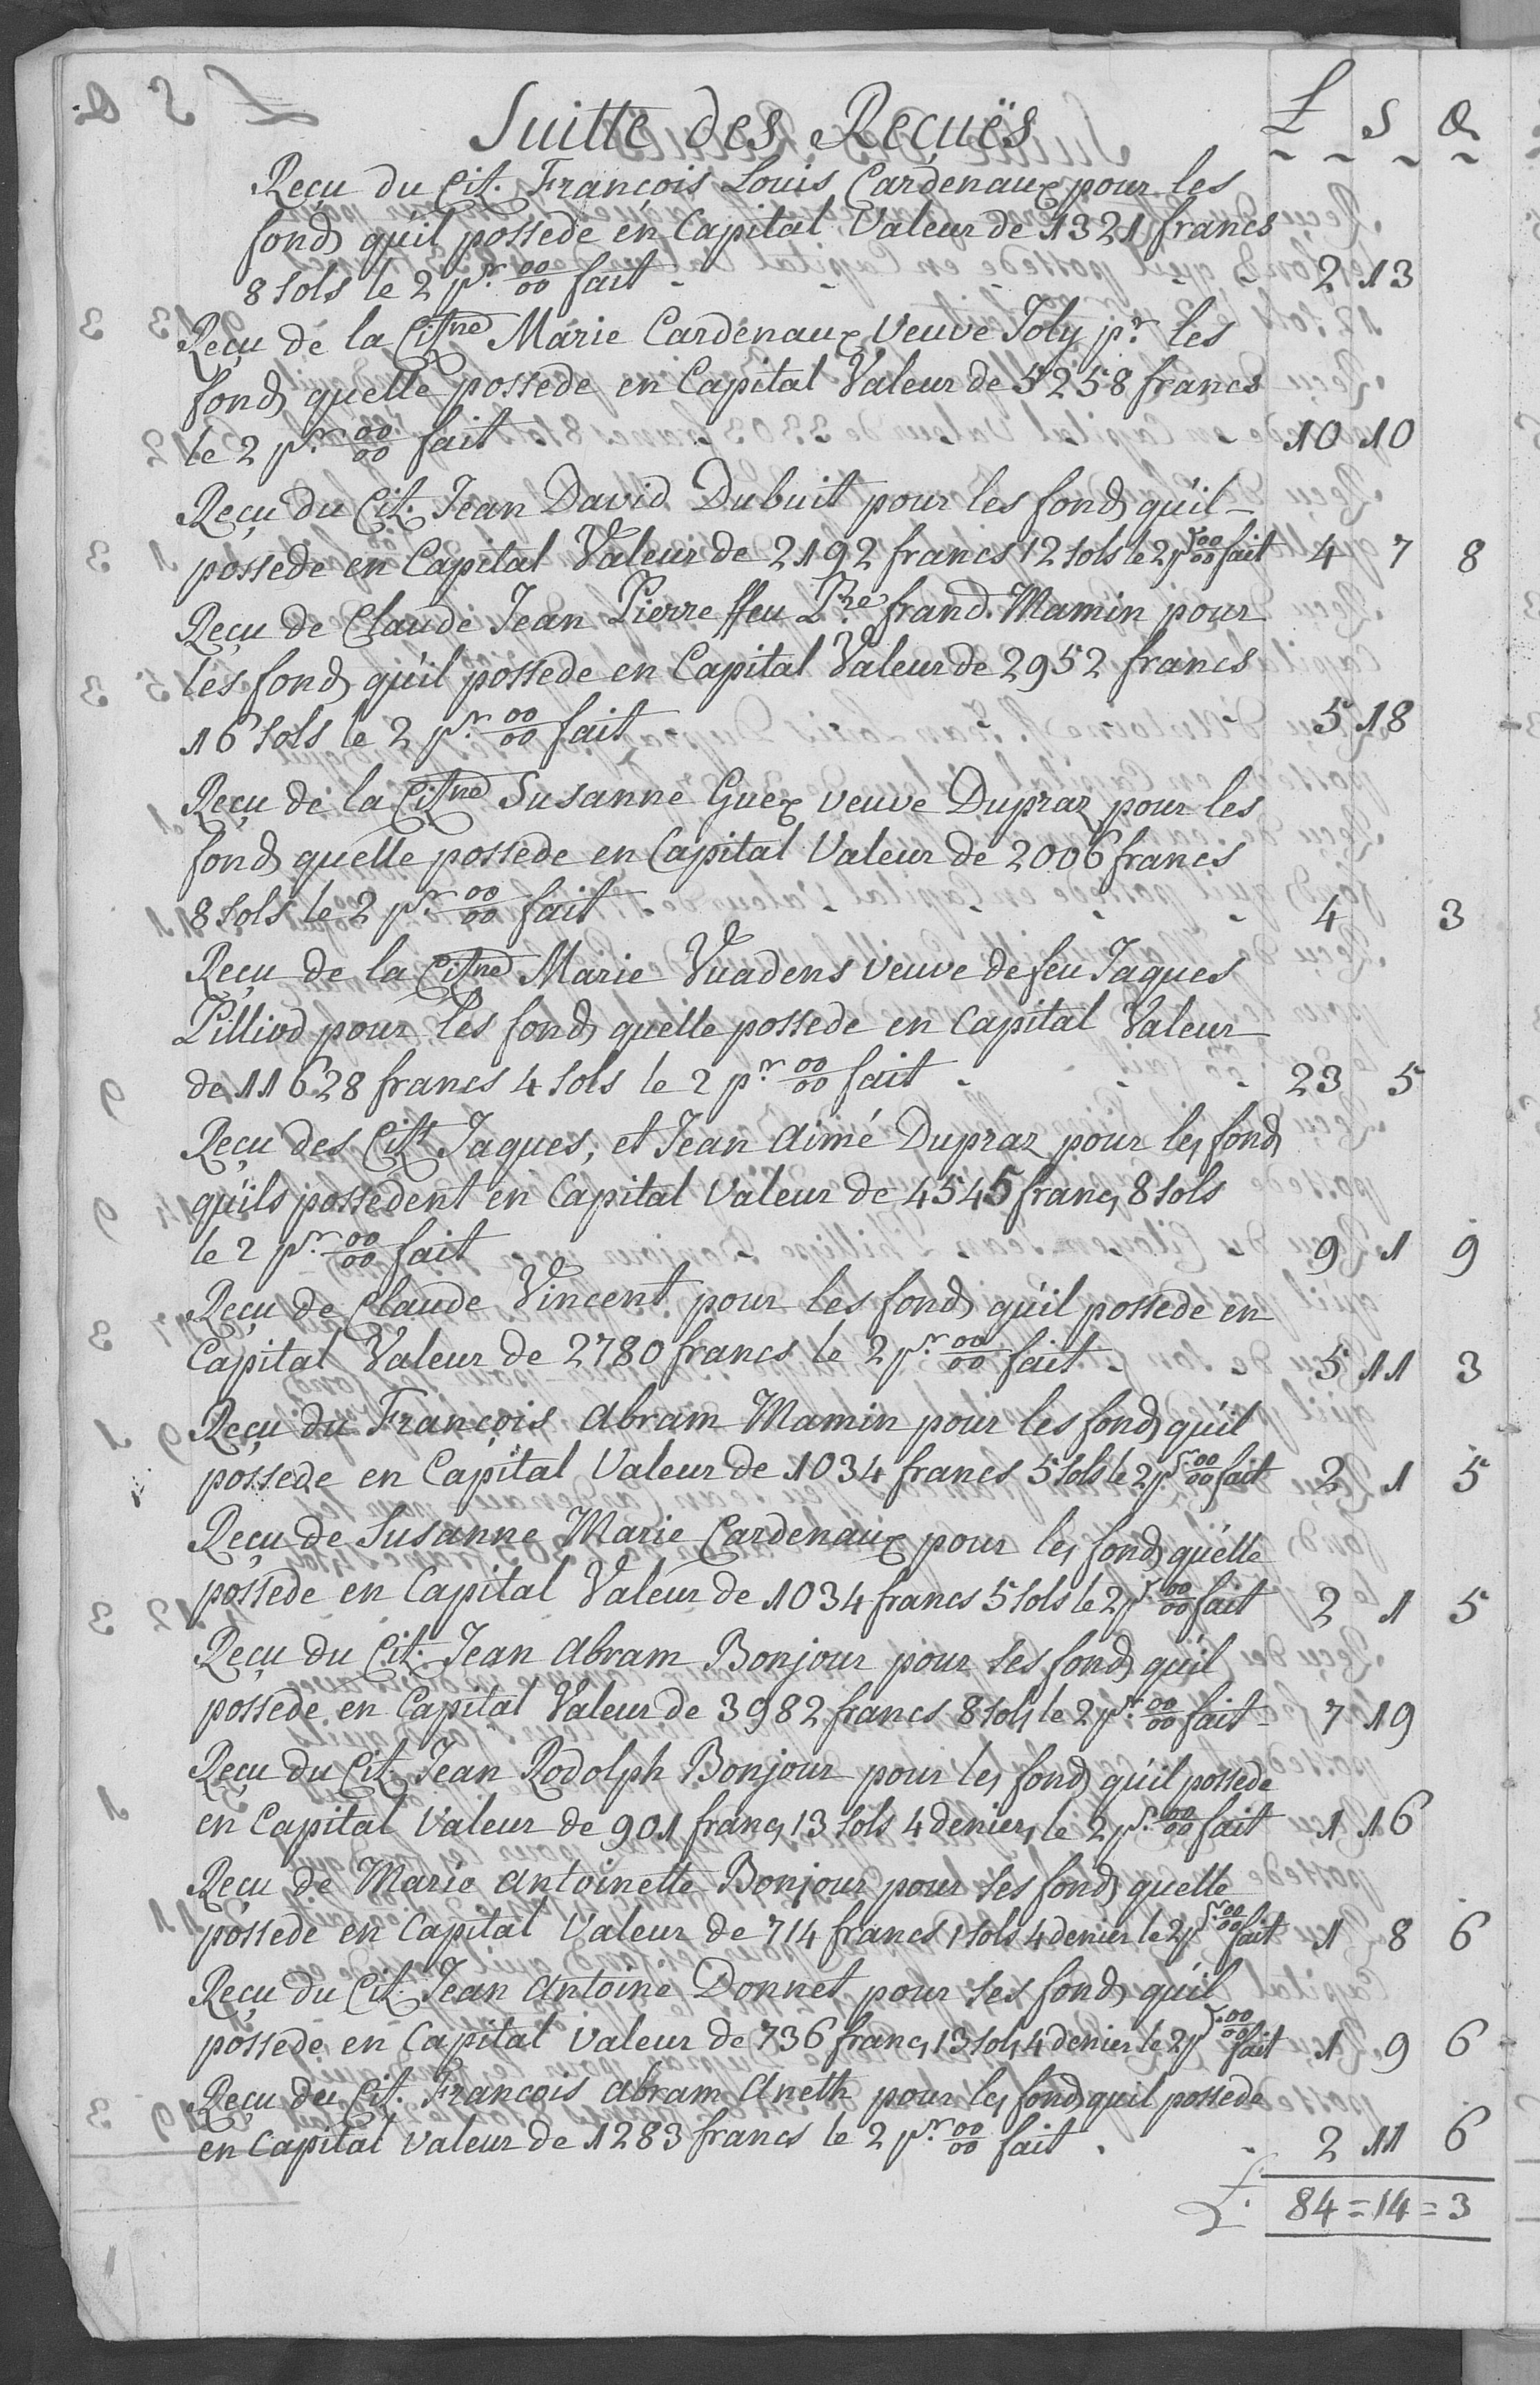 Suitte des Reçuës
£ S D.
Reçu du Cit. François Louis Cardenaux pour les
fonds qu'il possede en Capital Valeur de 1321 francs
8 sols le 2 pr. 00/00 fait - - - - 2 13
Reçu de la Citne Marie Cardenaux Veuve Joly pr. les
fonds quelle possede en Capital Valeur de 5258 francs
le 2 pr. 00/00 fait - - - 10 10
Reçu du Cit. Jean David Dubuit pour les fonds qu'il -
possede en Capital Valeur de 2192 francs 12 sols le 2 pr 00/00 fait 4 7 8
Reçu de Claude Jean Pierre ffeu Pre. frand. Mamin pour
les fonds qu'il possede en Capital Valeur de 2952 francs
16 sols le 2 pr. 00/00 fait - - - 5 18
Reçu de la Citne Susanne Guex veuve Dupraz pour les
fonds quelle possede en Capital Valeur de 2006 francs
8 sols le 2 pr. 00/00 fait - - - 4 3
Reçu de la Citne Marie Vuadens veuve de feu Jaques
Pilliod pour les fonds quelle possede en Capital Valeur
de 11628 francs 4 sols le 2 pr. 00/00 fait - - - 23 5
Reçu des Cits Jaques, et Jean Aimé Dupraz pour les fonds
qu'ils possedent en Capital Valeur de 4545 francs 8 sols
le 2 pr. 00/00 fait - - - 9 1 9
Reçu de Claude Vincent pour les fonds qu'il possede en
Capital Valeur de 2780 francs le 2 pr. 00/00 fait - - 5 11 3
Reçu du François Abram Mamin pour les fonds qu'il
possede en Capital Valeur de 1034 francs 5 sols le 2 pr. 00/00 fait 2 1 5
Reçu de Susanne Marie Cardenaux pour les fonds qu'elle
possede en Capital Valeur de 1034 francs 5 sols le 2 pr. 00/00 fait 2 1 5
Reçu du Cit. Jean Abram Bonjour pour ses fonds qu'il
possede en Capital Valeur de 3982 francs 8 sols le 2 pr. 00/00 fait - 7 19
Reçu du Cit. Jean Rodolph Bonjour pour les fonds qu'il possede
en Capital Valeur de 901 francs 13 sols 4 deniers le 2 pr. 00/00 fait 1 16
Reçu de Marie Antoinette Bonjour pour ses fonds quelle
possede en Capital Valeur de 714 francs 1 sols 4 denier le 2 pr. 00/00 fait 1 8 6
Reçu du Cit. Jean Antoine Donnet pour ses fonds qu'il
possede en Capital Valeur de 736 francs 13 sols 4 denier le 2 pr. 00/00 fait 1 9 6
Reçu du Cit. Francois Abram Aneth pour les fonds quil possede
en Capital Valeur de 1283 francs le 2 pr. 00/00 fait - - 2 11 6
£. 84 = 14 = 3